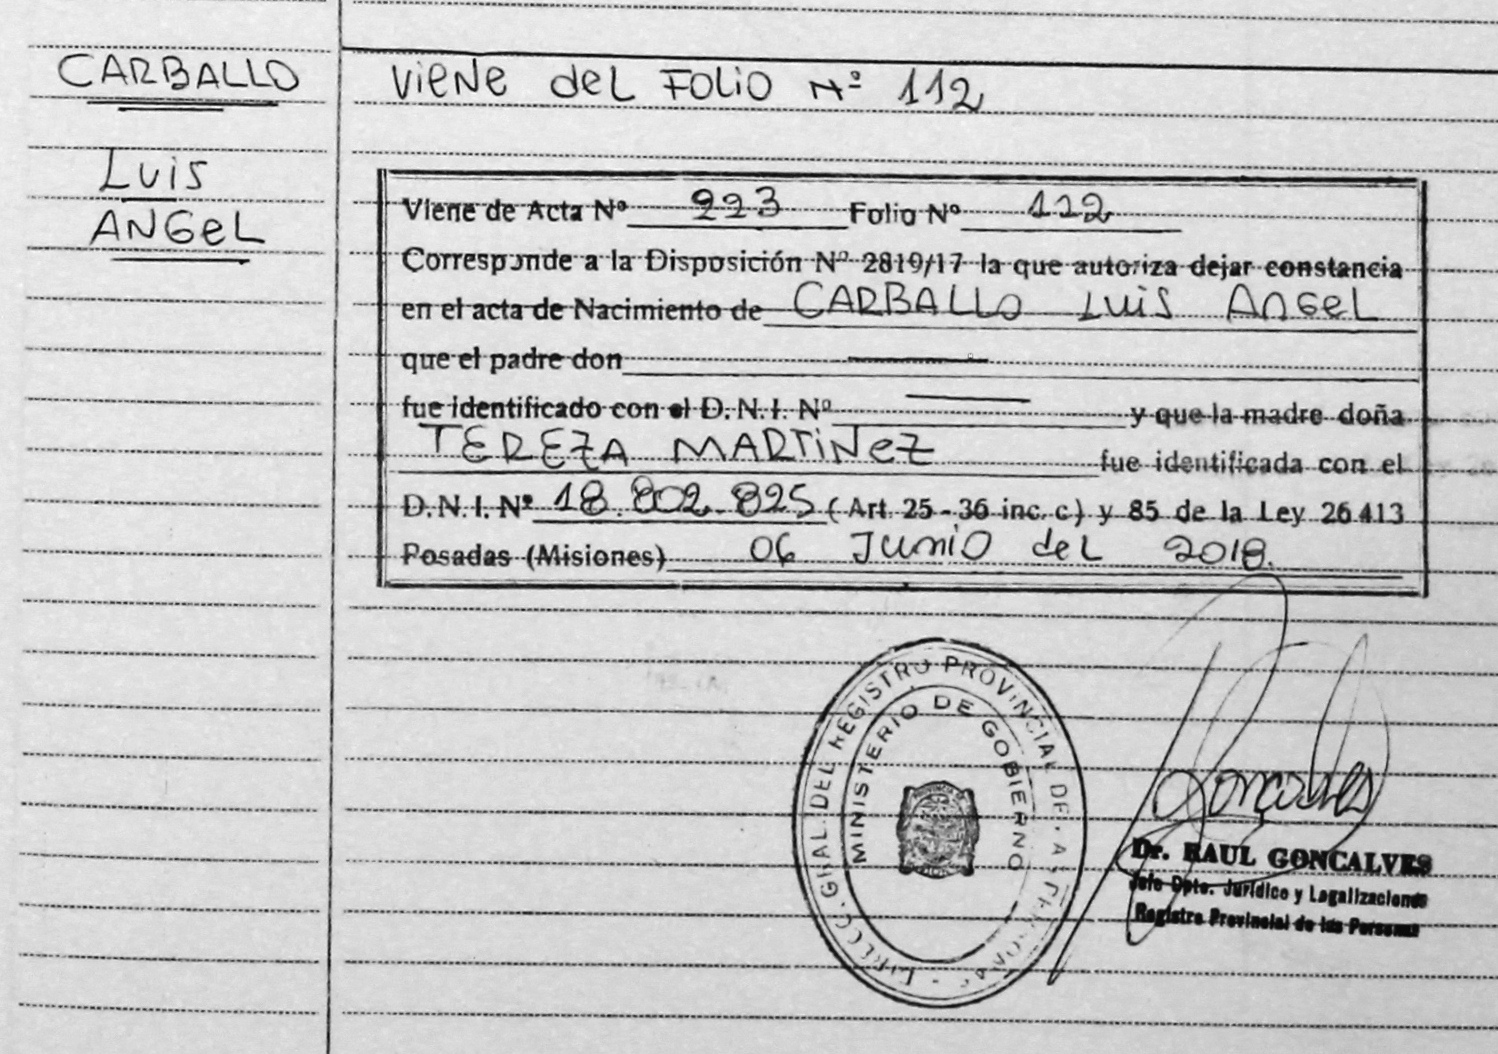 CARBALLO
Luis
ANGeL
VieNe deL FOLiO Nº 112
Viene de Acta Nº 223 Folio Nº 112
Corresponde a la Disposición Nº 2819/17 la que autoriza dejar constancia
en el acta de Nacimiento de CARBALLO Luis ANGeL
que el padre don ———
fue identificado con el D.N.I. Nº ——— y que la madre doña
TEREZA MARTiNeZ fue identificada con el
D.N.I. Nº 18.802.825 (Art. 25 - 36 inc. c) y 85 de la Ley 26.413
Posadas (Misiones) 06 JuniO deL 2018.
DIRECC. GRAL. DEL REGISTRO PROVINCIAL DE LAS PERSONAS
MINISTERIO DE GOBIERNO
Goncalves
Dr. RAUL GONCALVES
Jefe Dpto. Jurídico y Legalizaciones
Registro Provincial de las Personas